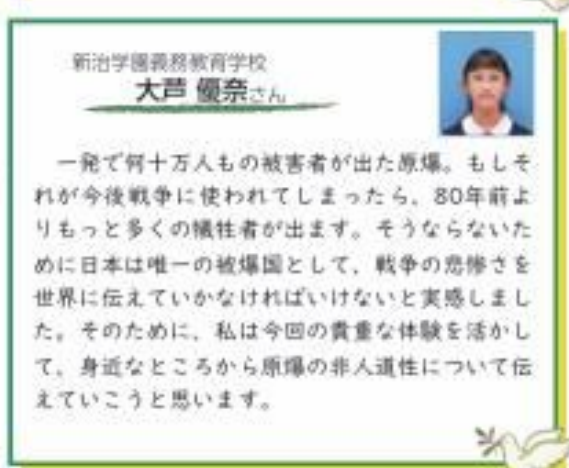 新治学園義務教育学校
大芦 優奈さん
一発で何十万人もの被害者が出た原爆。もしそ
れが今後戦争に使われてしまったら、80年前よ
りもっと多くの犠牲者が出ます。そうならないた
めに日本は唯一の被爆国として、戦争の悲惨さを
世界に伝えていかなければいけないと実感しまし
た。そのために、私は今回の貴重な体験を活かし
て、身近なところから原爆の非人道性について伝
えていこうと思います。